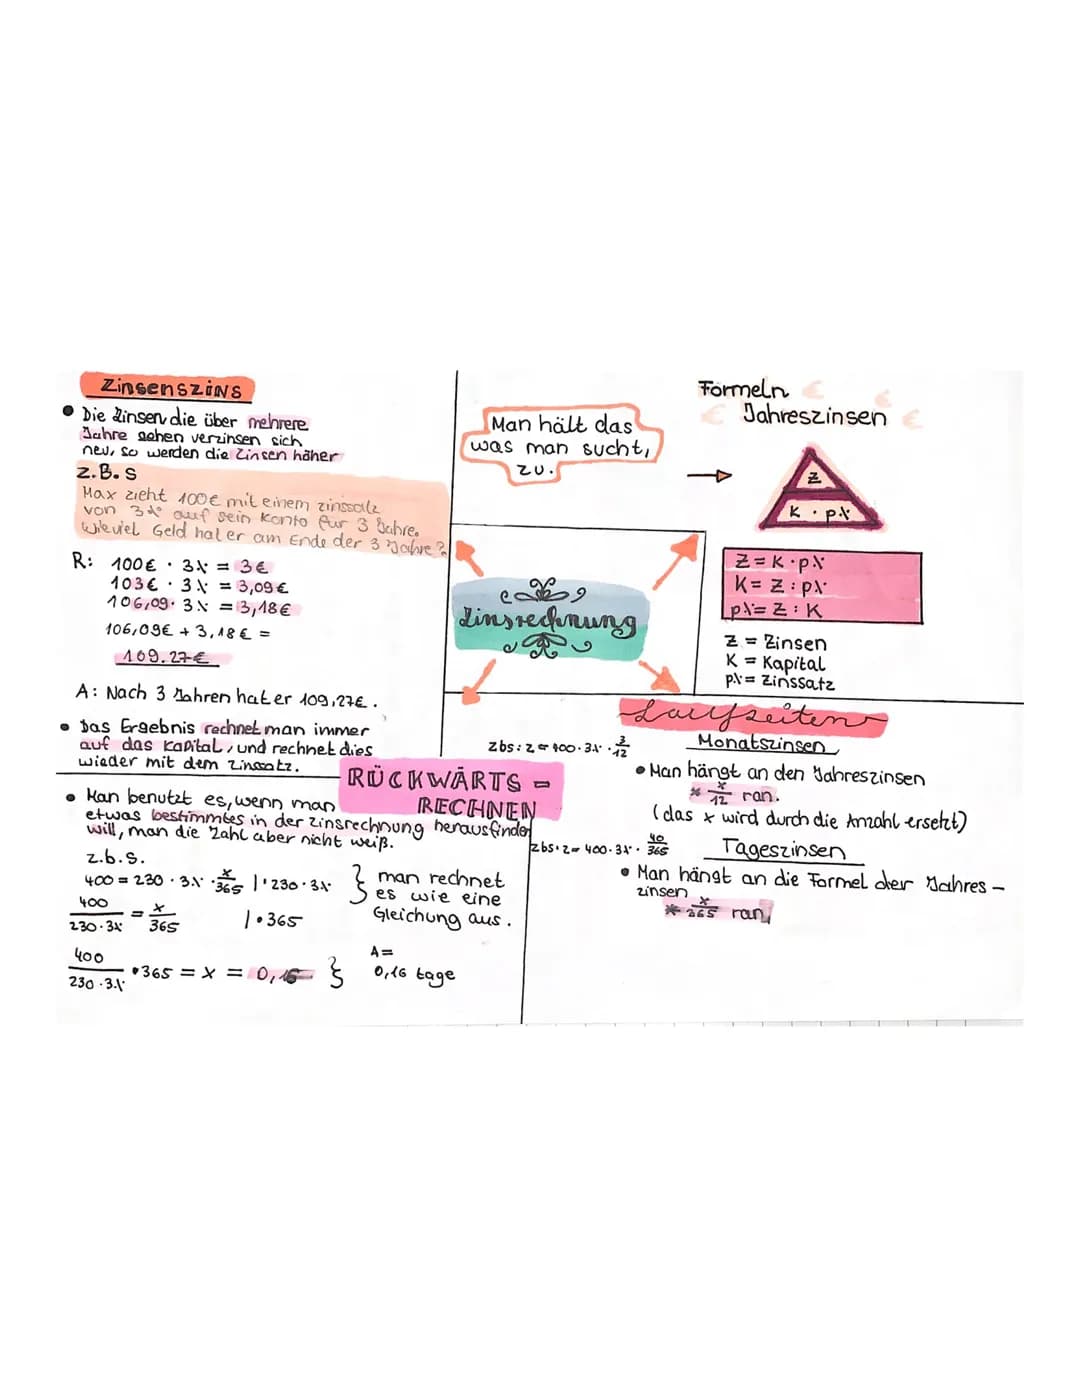 Zinsenszins
• Die Zinsen die über mehrere
Jahre gehen verzinsen sich
neu, so werden die Zinsen höher
z.B.s
Max zieht 100€ mit einem zinssatz
von 3% auf sein Konto für 3 Jahre.
Wieviel Geld hat er am Ende der 3 Jahre?
R: 100€ · 3% = 3€
103€ · 3% = 3,09€
106,09· 3% = 3,18€
106,09€ + 3,18€ =
109.27€
A: Nach 3 Jahren hat er 109,27€.
• Das Ergebnis rechnet man immer
auf das Kapital, und rechnet dies
wieder mit dem Zinssatz.
Man hält das
was man sucht,
zu.
Formeln €
€ Jahreszinsen €
Z
K · p%
Z = K · p%
K = Z : p%
p% = Z : K
Z = Zinsen
K = Kapital
p% = Zinssatz
Zinsrechnung
RÜCKWÄRTS -
RECHNEN
• Man benutzt es, wenn man
etwas bestimmtes in der zinsrechnung herausfinden
will, man die Zahl aber nicht weiß.
z.b.s.
400 = 230 · 3% · x/365 | : 230 · 3%
400/230·3% = x/365 | · 365
400/230·3% · 365 = x = 0,16
} man rechnet
es wie eine
Gleichung aus.
} A=
0,16 tage
Laufzeiten
Monatszinsen
zbs: z = 400 · 3% · 3/12
• Man hängt an den Jahreszinsen
* x/12 ran.
(das x wird durch die Anzahl ersetzt)
Tageszinsen
zbs: z = 400 · 3% · 40/365
• Man hängt an die Formel der Jahres-
zinsen
* x/365 ran,